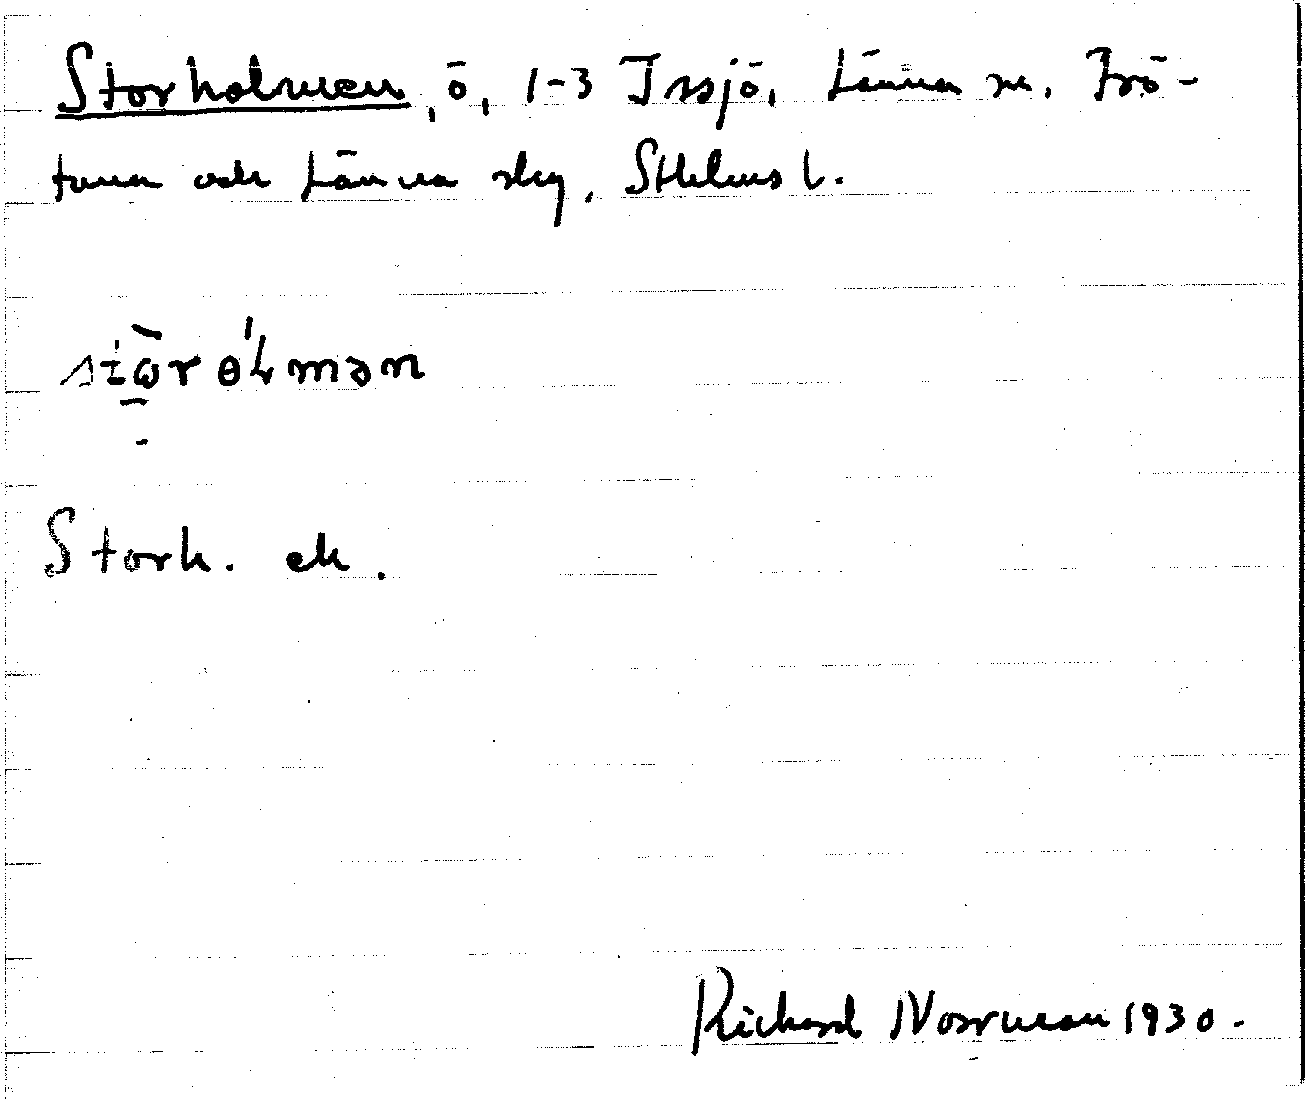 Storholmen, ö, 1-3 Issjö, Länna sn. Frö-
tuna och Länna slg, Sthlms l.
stω̄rɵ́lmən
Stork. ek.
Richard Norrman 1930.